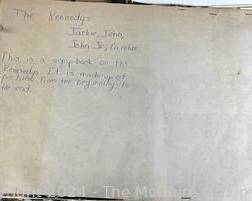 The Kennedys
Jackie, John,
John Jr, Caroline
This is a scrapbook on the
Kennedys. It is made up of
pictures from the beginning to
the end.
2024 - The McGuire